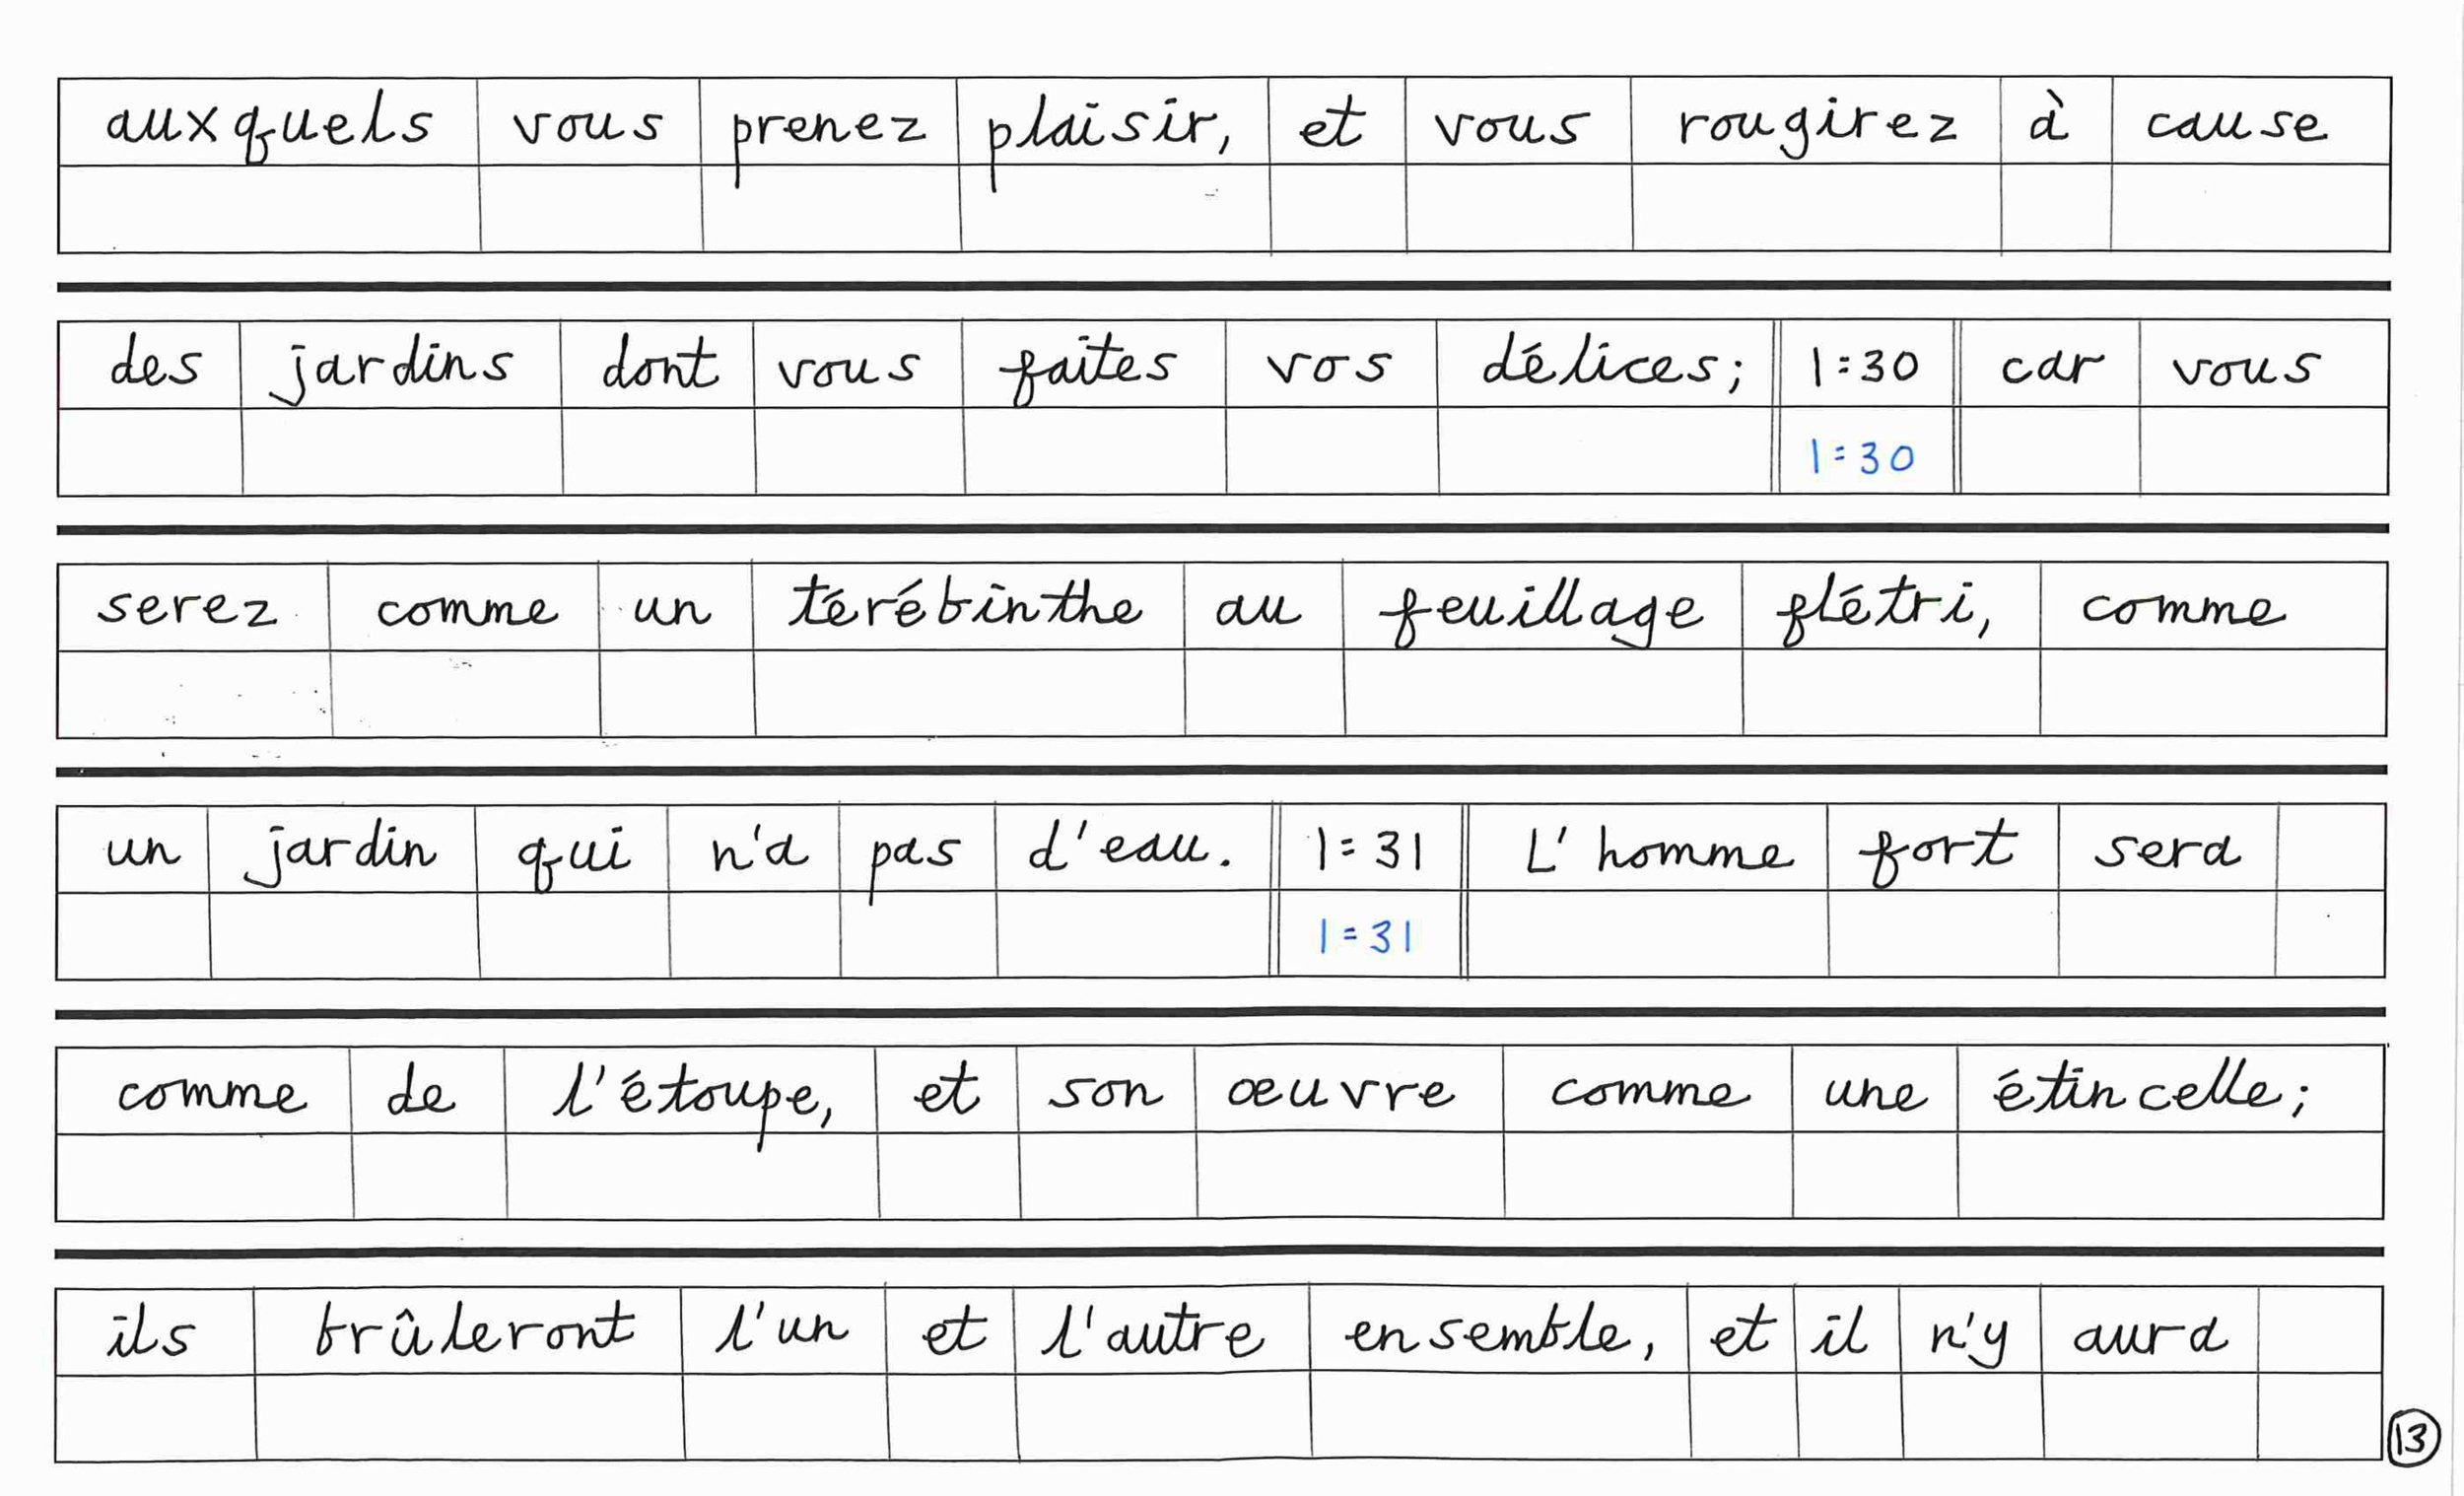 auxquels vous prenez plaisir, et vous rougirez à cause
des jardins dont vous faites vos délices; 1:30 car vous
1:30
serez comme un térébinthe au feuillage flétri, comme
un jardin qui n'a pas d'eau. 1:31 L'homme fort sera
1:31
comme de l'étoupe, et son œuvre comme une étincelle;
ils brûleront l'un et l'autre ensemble, et il n'y aura
13